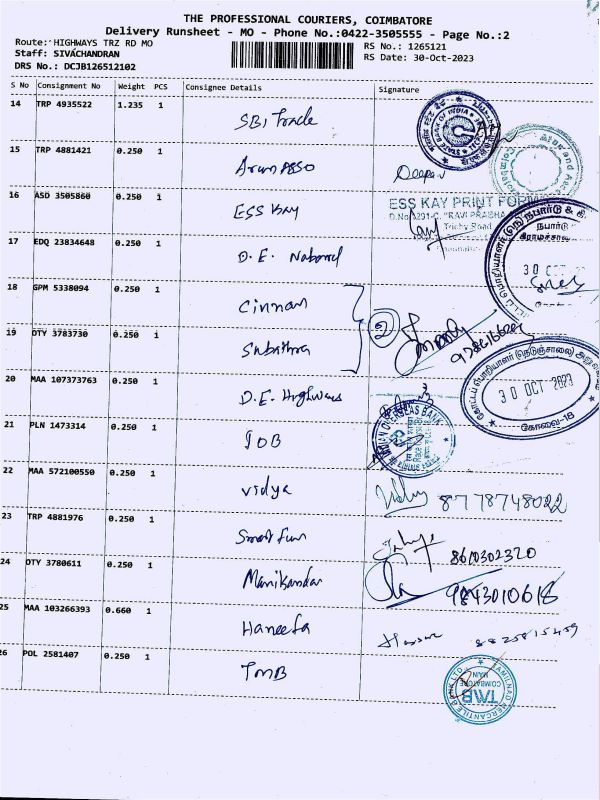 THE PROFESSIONAL COURIERS, COIMBATORE
Delivery Runsheet - MO - Phone No.:0422-3505555 - Page No.:2
Route: HIGHWAYS TRZ RD MO
RS No.: 1265121
Staff: SIVACHANDRAN
RS Date: 30-Oct-2023
DRS No.: DCJB126512102
S No Consignment No Weight PCS Consignee Details Signature
14 TRP 4935522 1.235 1 SBI Trade
STATE BANK OF INDIA
15 TRP 4881421 0.250 1 Arun ASSO Deepan
16 ASD 3505860 0.250 1 ESS KAY
ESS KAY PRINT FORM
"RAVI PRABHA
Trichy Road
17 EDQ 23834648 0.250 1 D.E. Nabard
நபார்டு
30 OCT
18 GPM 5338094 0.250 1 Cinnan
2
19 OTY 3783730 0.250 1 Subithra
20 MAA 107373763 0.250 1 D.E. Highways
30 OCT 2023
கோவை-18
21 PLN 1473314 0.250 1 IOB
OVERSEAS BANK
22 MAA 572100550 0.250 1 vidya 8778748022
23 TRP 4881976 0.250 1 Smart fun 8610302320
24 OTY 3780611 0.250 1 Manikandan 9843010618
25 MAA 103266393 0.660 1 Haneefa
26 POL 2581407 0.250 1 TMB
TAMILNAD MERCANTILE BANK LTD.
TMB
COIMBATORE
MAIN